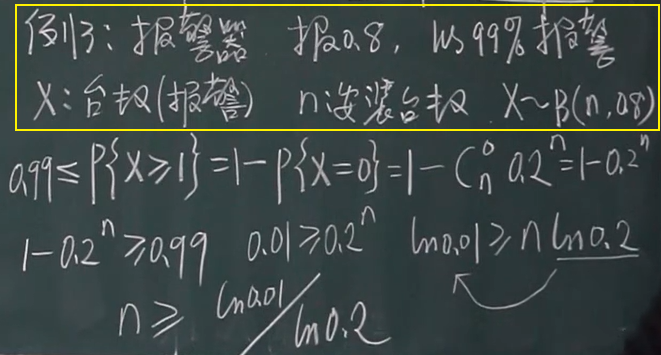 例3：报警器 报0.8, 以99%报警
X：台数(报警) n：安装台数 X~B(n,0.8)
0.99≤P{X≥1}=1-P{X=0}=1-C_n^0 0.2^n=1-0.2^n
1-0.2^n≥0.99 0.01≥0.2^n ln0.01≥n ln0.2
n≥ ln0.01/ln0.2